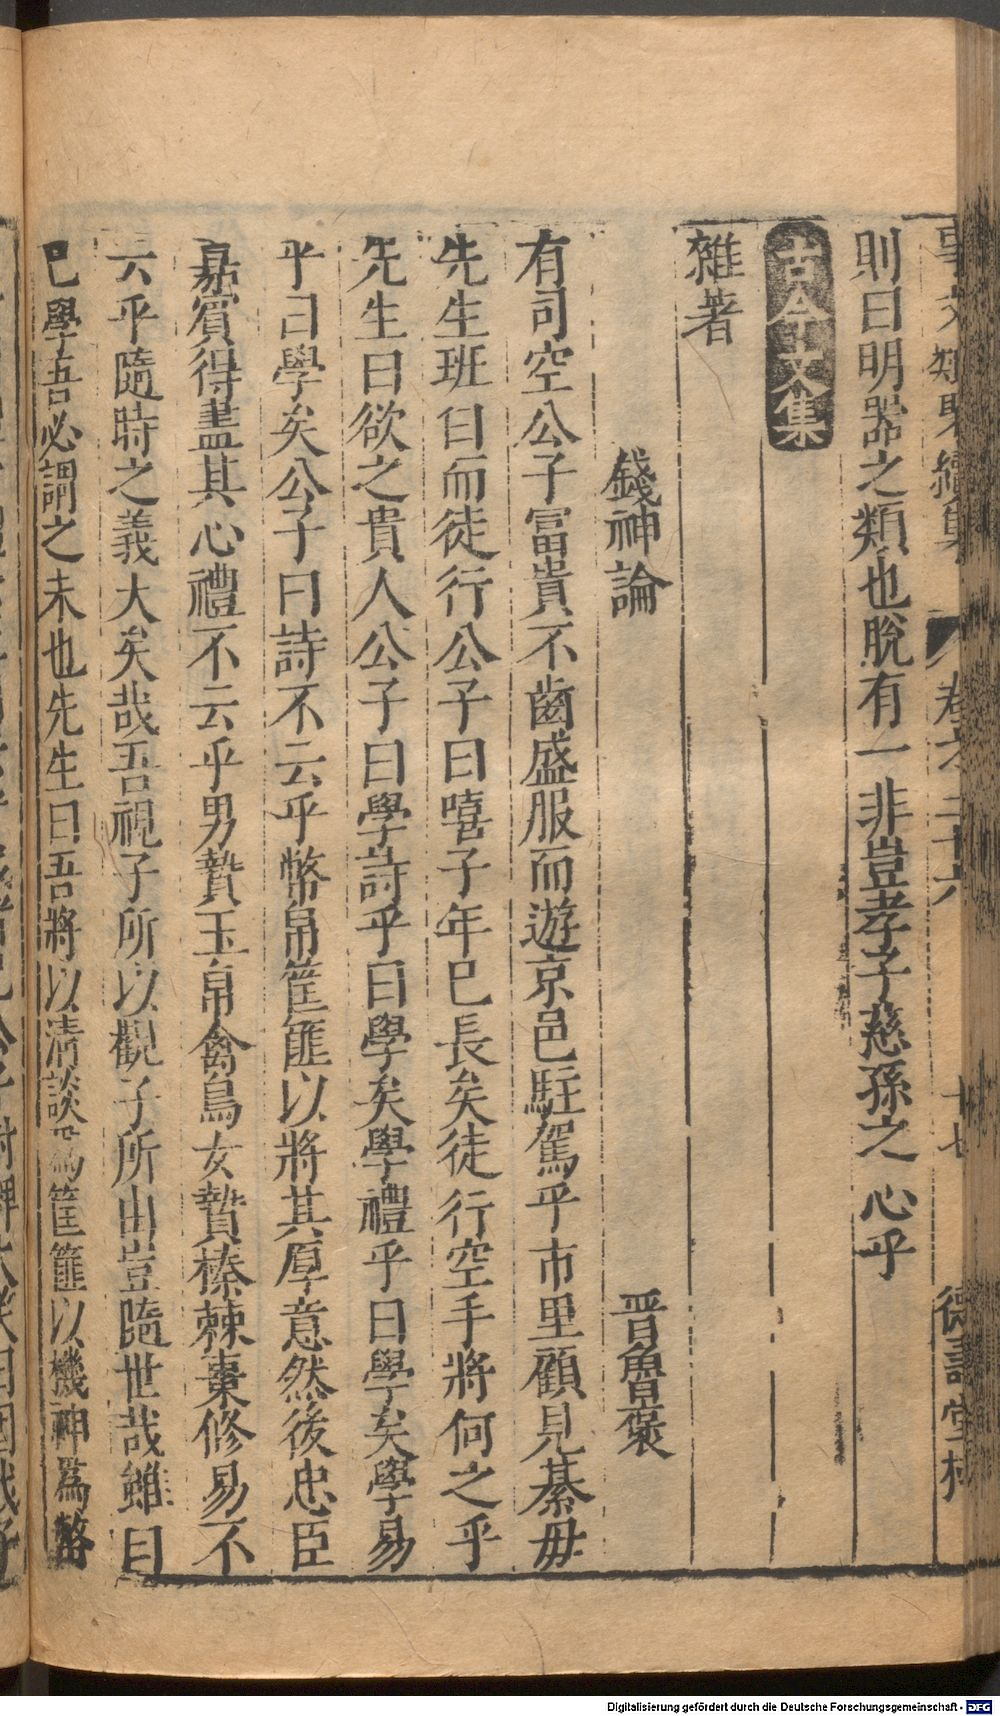 事文類聚續集 卷之二十六 十七 德壽堂梓
則曰明器之類也脫有一非豈孝子慈孫之心乎
古今文集
雜著
錢神論 晋魯褒
有司空公子富貴不齒盛服而遊京邑駐駕乎市里顧見綦毋
先生班曰而徒行公子曰嘻子年巳長矣徒行空手將何之乎
先生曰欲之貴人公子曰學詩乎曰學矣學禮乎曰學矣學易
乎曰學矣公子曰詩不云乎幣帛筐篚以將其厚意然後忠臣
嘉賓得盡其心禮不云乎男贄玉帛禽鳥女贄榛棘棗修易不
云乎隨時之義大矣哉吾視子所以觀子所由豈隨世哉雖曰
巳學吾必謂之未也先生曰吾將以清談爲筐篚以機神爲幣
Digitalisierung gefördert durch die Deutsche Forschungsgemeinschaft - DFG